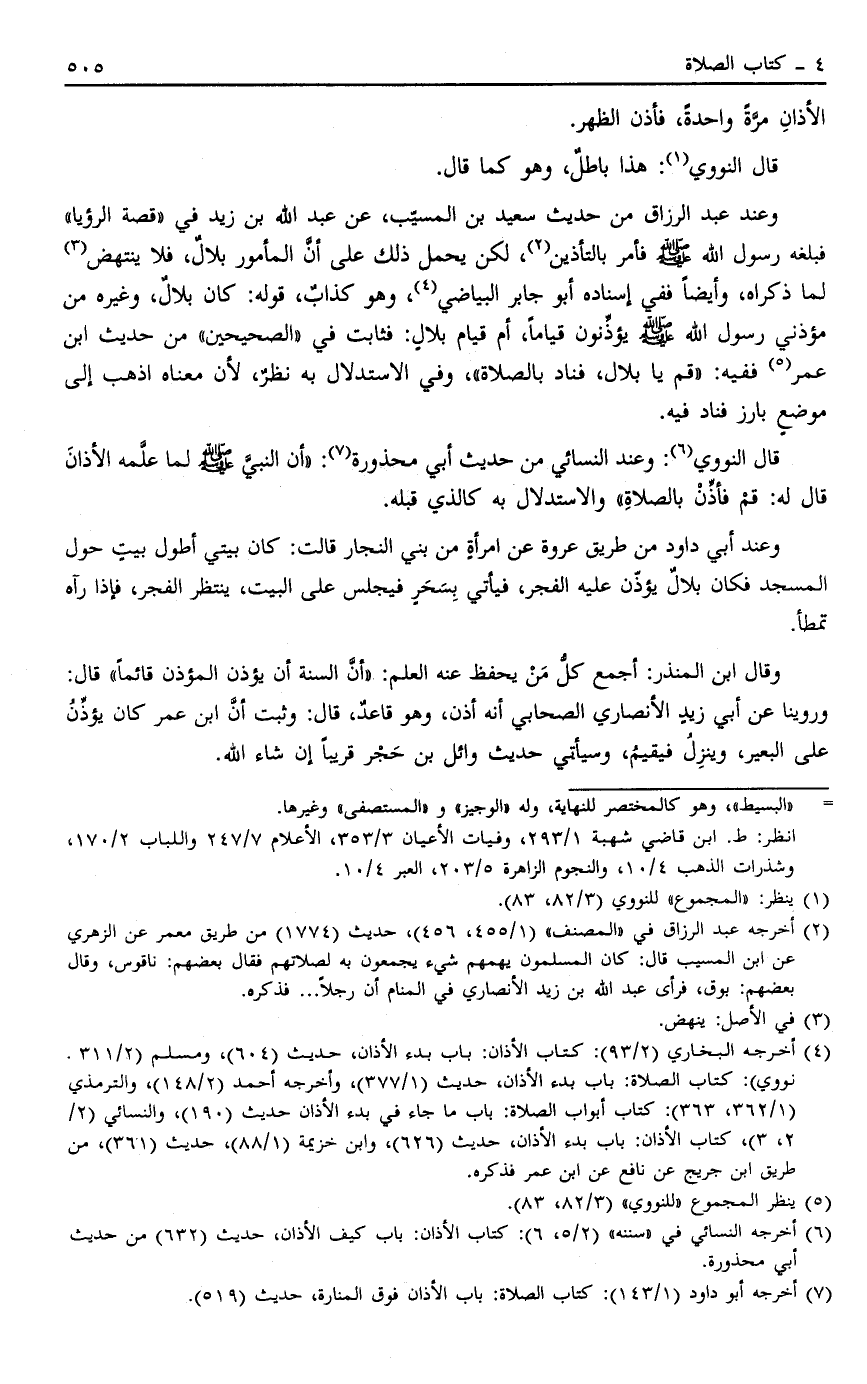 ٤ ـ كتاب الصلاة ٥٠٥
الأذانِ مرَّةً واحدةً، فأذن الظهر.
قال النووي(١): هذا باطلٌ، وهو كما قال.
وعند عبد الرزاق من حديث سعيد بن المسيّب، عن عبد الله بن زيد في «قصة الرؤيا»
فبلغه رسول الله ﷺ فأمر بالتأذين(٢)، لكن يحمل ذلك على أنَّ المأمور بلالٌ، فلا ينتهض(٣)
لما ذكراه، وأيضاً ففي إسناده أبو جابر البياضي(٤)، وهو كذابٌ، قوله: كان بلالٌ، وغيره من
مؤذني رسول الله ﷺ يؤذِّنون قياماً، أم قيام بلالٍ: فثابت في «الصحيحين» من حديث ابن
عمر(٥) ففيه: «قم يا بلال، فناد بالصلاة»، وفي الاستدلال به نظرٌ، لأن معناه اذهب إلى
موضعٍ بارز فناد فيه.
قال النووي(٦): وعند النسائي من حديث أبي محذورة(٧): «أن النبيَّ ﷺ لما علَّمه الأذانَ
قال له: قمْ فأذِّنْ بالصلاةِ» والاستدلال به كالذي قبله.
وعند أبي داود من طريق عروة عن امرأةٍ من بني النجار قالت: كان بيتي أطول بيتٍ حول
المسجد فكان بلالٌ يؤذّن عليه الفجر، فيأتي بِسَحَرٍ فيجلس على البيت، ينتظر الفجر، فإذا رآه
تمطأ.
وقال ابن المنذر: أجمع كلُّ مَنْ يحفظ عنه العلم: «أنَّ السنة أن يؤذن المؤذن قائماً» قال:
وروينا عن أبي زيدٍ الأنصاري الصحابي أنه أذن، وهو قاعدٌ، قال: وثبت أنَّ ابن عمر كان يؤذِّنُ
على البعير، وينزِلُ فيقيمُ، وسيأتي حديث وائل بن حَجْر قريباً إن شاء الله.
= «البسيط»، وهو كالمختصر للنهاية، وله «الوجيز» و «المستصفى» وغيرها.
انظر: ط. ابن قاضي شهبة ٢٩٣/١، وفيات الأعيان ٣٥٣/٣، الأعلام ٢٤٧/٧ واللباب ١٧٠/٢،
وشذرات الذهب ١٠/٤، والنجوم الزاهرة ٢٠٣/٥، العبر ١٠/٤.
(١) ينظر: «المجموع» للنووي (٨٢/٣، ٨٣).
(٢) أخرجه عبد الرزاق في «المصنف» (٤٥٥/١، ٤٥٦)، حديث (١٧٧٤) من طريق معمر عن الزهري
عن ابن المسيب قال: كان المسلمون يهمهم شيء يجمعون به لصلاتهم فقال بعضهم: ناقوس، وقال
بعضهم: بوق، فرأى عبد الله بن زيد الأنصاري في المنام أن رجلاً... فذكره.
(٣) في الأصل: ينهض.
(٤) أخرجه البخاري (٩٣/٢): كتاب الأذان: باب بدء الأذان، حديث (٦٠٤)، ومسلم (٣١١/٢ .
نووي): كتاب الصلاة: باب بدء الأذان، حديث (٣٧٧/١)، وأخرجه أحمد (١٤٨/٢)، والترمذي
(٣٦٢/١، ٣٦٣): كتاب أبواب الصلاة: باب ما جاء في بدء الأذان حديث (١٩٠)، والنسائي (٢/
٢، ٣)، كتاب الأذان: باب بدء الأذان، حديث (٦٢٦)، وابن خزيمة (٨٨/١)، حديث (٣٦١)، من
طريق ابن جريج عن نافع عن ابن عمر فذكره.
(٥) ينظر المجموع «للنووي» (٨٢/٣، ٨٣).
(٦) أخرجه النسائي في «سننه» (٥/٢، ٦): كتاب الأذان: باب كيف الأذان، حديث (٦٣٢) من حديث
أبي محذورة.
(٧) أخرجه أبو داود (١٤٣/١): كتاب الصلاة: باب الأذان فوق المنارة، حديث (٥١٩).